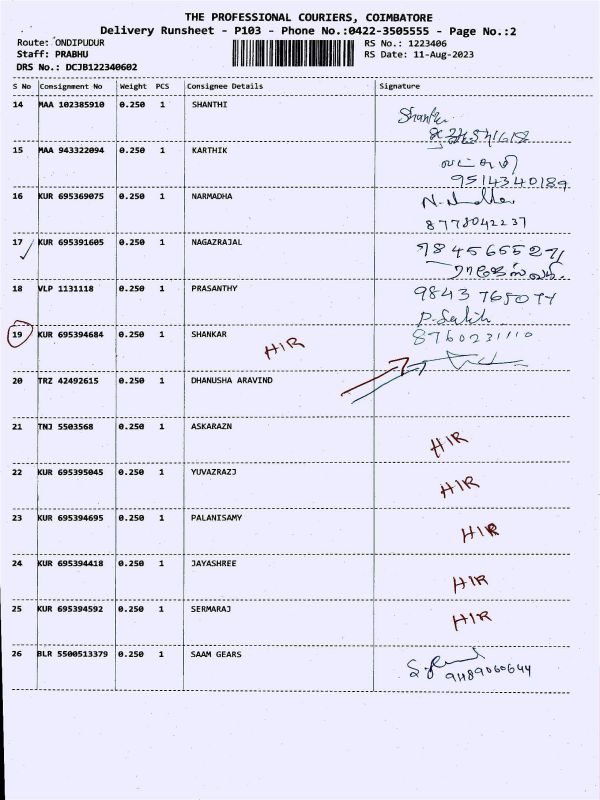 THE PROFESSIONAL COURIERS, COIMBATORE
Delivery Runsheet - P103 - Phone No.:0422-3505555 - Page No.:2
Route: ONDIPUDUR RS No.: 1223406
Staff: PRABHU RS Date: 11-Aug-2023
DRS No.: DCJB122340602
S No Consignment No Weight PCS Consignee Details Signature
14 MAA 102385910 0.250 1 SHANTHI
15 MAA 943322094 0.250 1 KARTHIK
9514340189
16 KUR 695369075 0.250 1 NARMADHA
8778042237
17 KUR 695391605 0.250 1 NAGAZRAJAL
18 VLP 1131118 0.250 1 PRASANTHY
19 KUR 695394684 0.250 1 SHANKAR HIR
8760231110
20 TRZ 42492615 0.250 1 DHANUSHA ARAVIND
21 TNJ 5503568 0.250 1 ASKARAZN HIR
22 KUR 695395045 0.250 1 YUVAZRAZJ HIR
23 KUR 695394695 0.250 1 PALANISAMY HIR
24 KUR 695394418 0.250 1 JAYASHREE HIR
25 KUR 695394592 0.250 1 SERMARAJ HIR
26 BLR 5500513379 0.250 1 SAAM GEARS